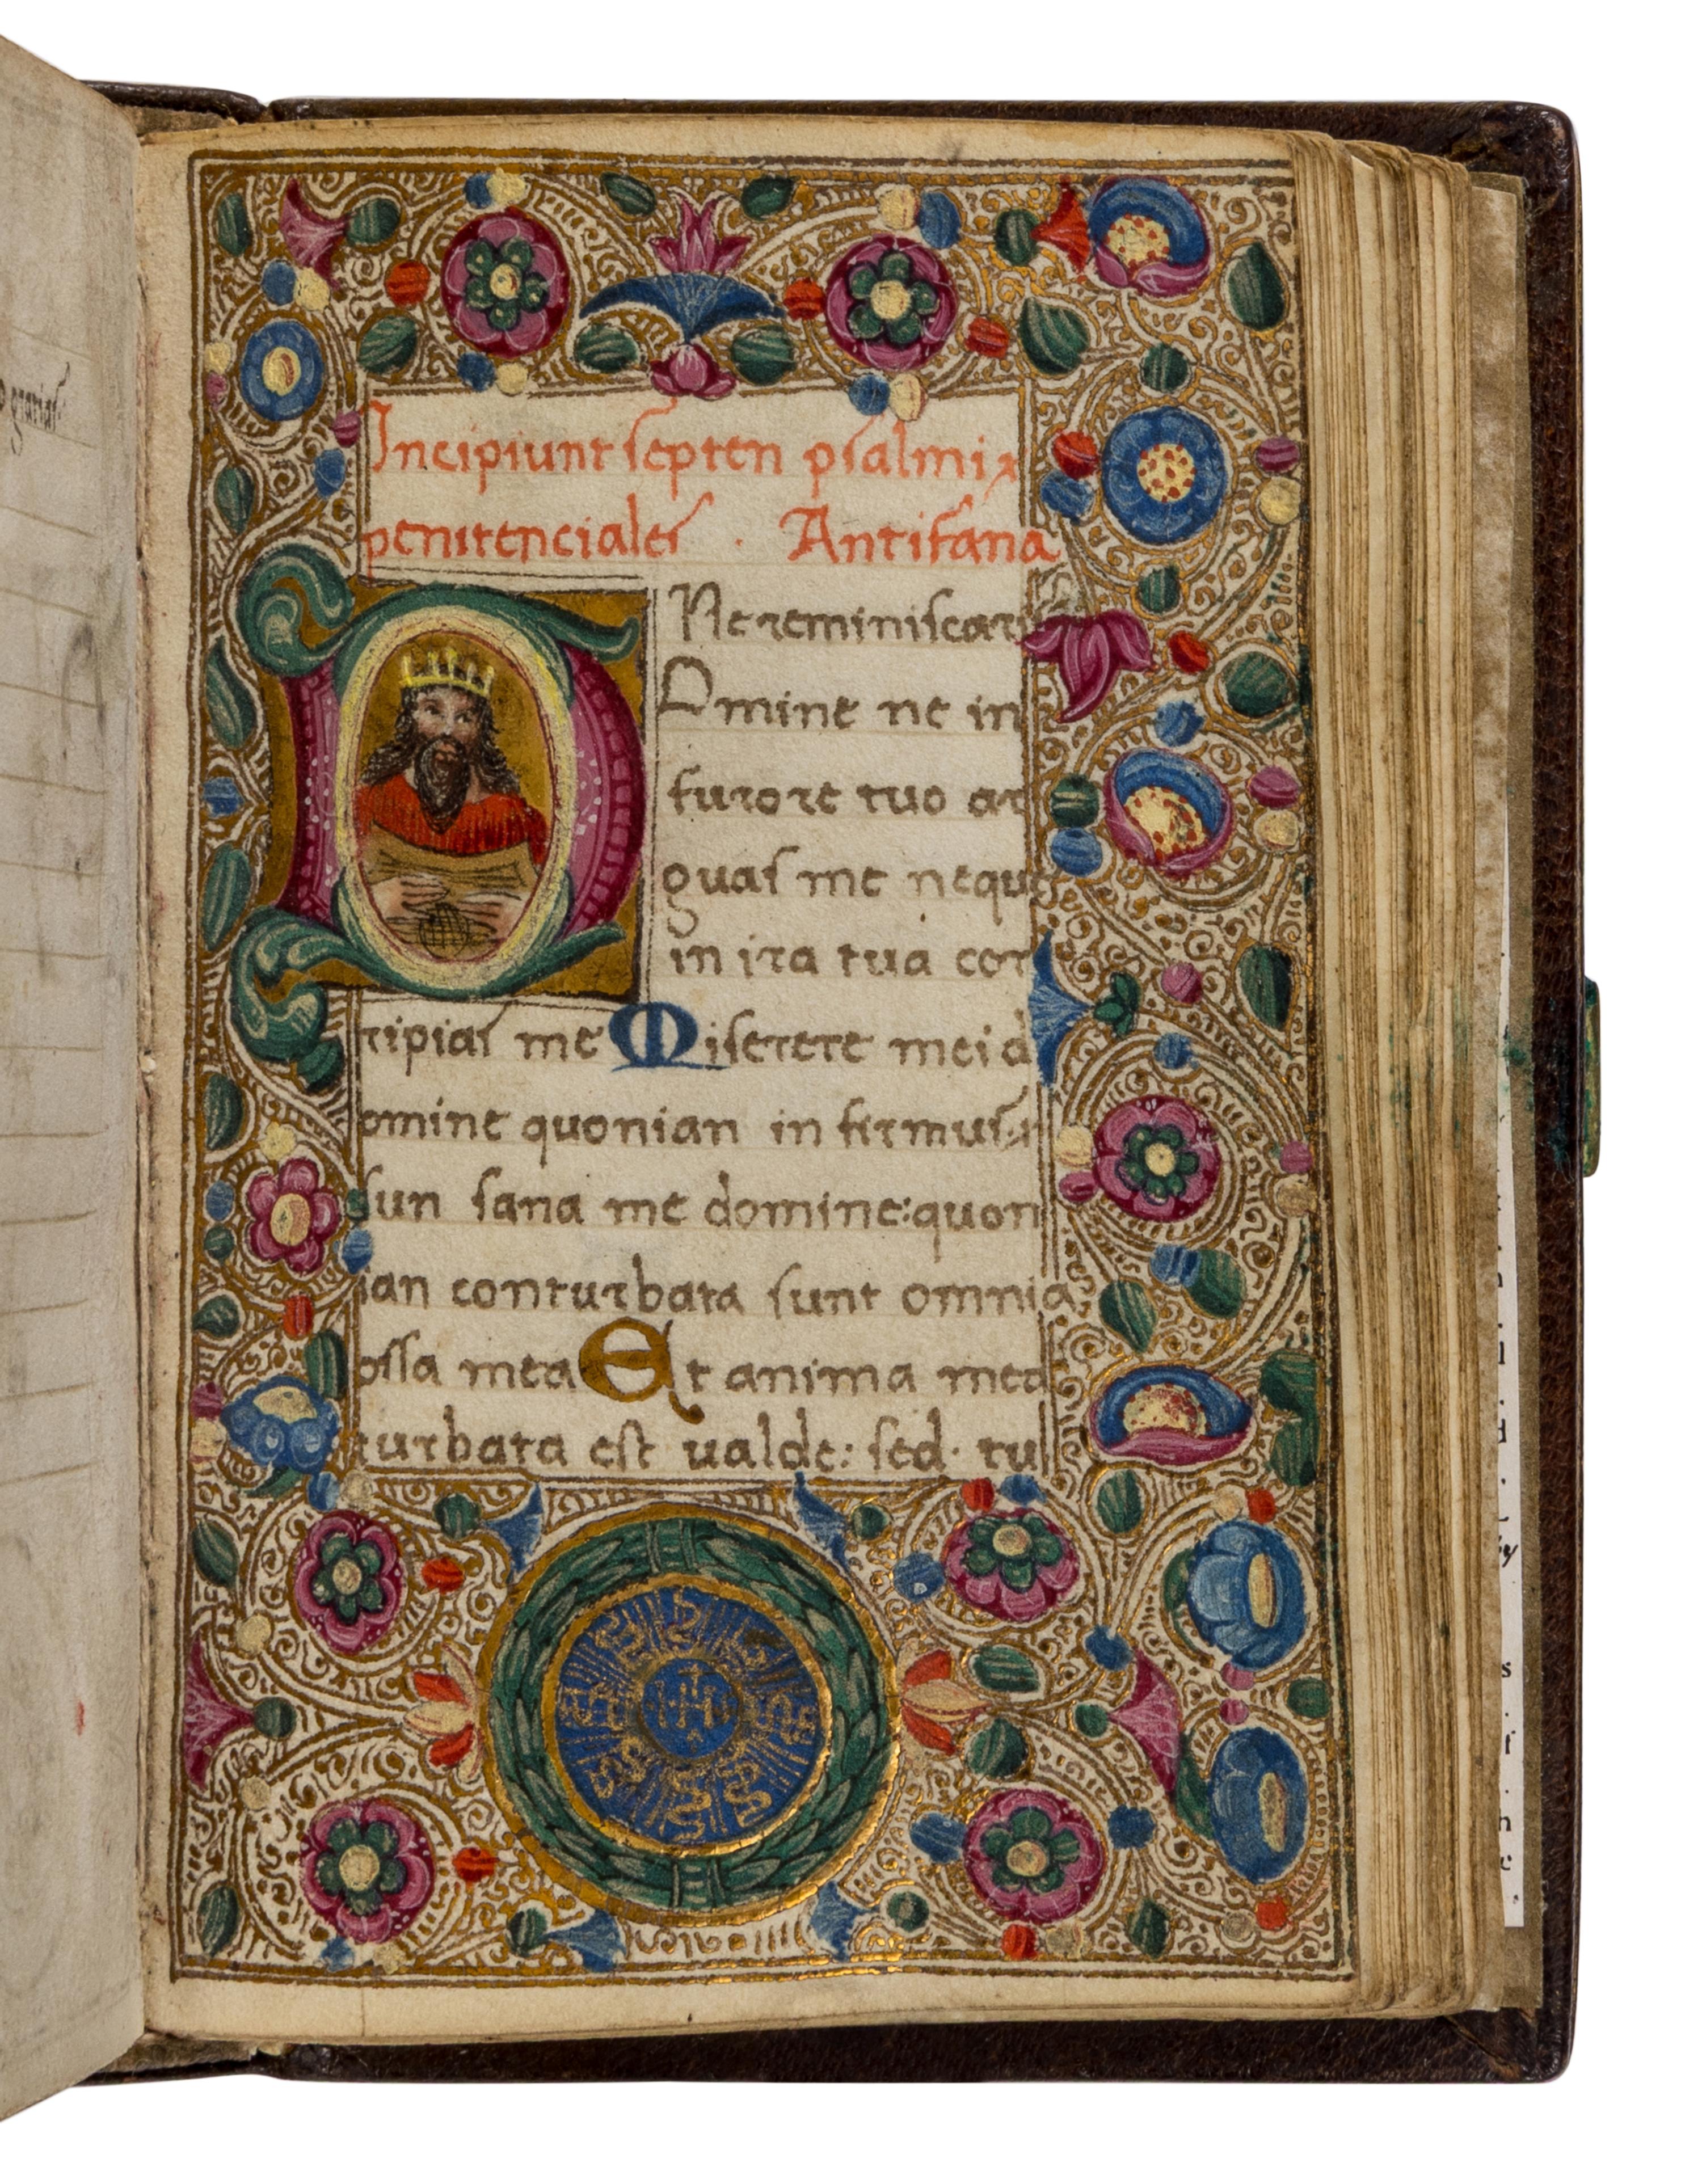 gratias
Incipiunt septen psalmi
penitenciales . Antifana
Ne reminiscaris
Dmine ne in
furore tuo ar
guas me neque
in ira tua cor
ripias me Miserere mei d
omine quonian in firmus
sun sana me domine: quon
ian conturbata sunt omnia
ossa mea Et anima mea
turbata est ualde: sed. tu